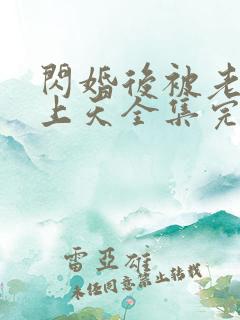 閃婚後被老
上天全集完
雷亞雄
未经同意禁止转载